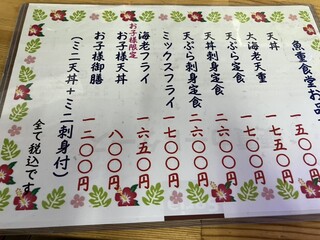 魚重食堂お品
天丼 一五〇〇円
大海老天重 一七五〇円
天ぷら定食 一七〇〇円
天丼刺身定食 二六〇〇円
天ぷら刺身定食 二六〇〇円
ミックスフライ 一七〇〇円
海老フライ 一六五〇円
お子様限定
お子様天丼 八〇〇円
お子様御膳 一二〇〇円
(ミニ天丼+ミニ刺身付)
全て税込です